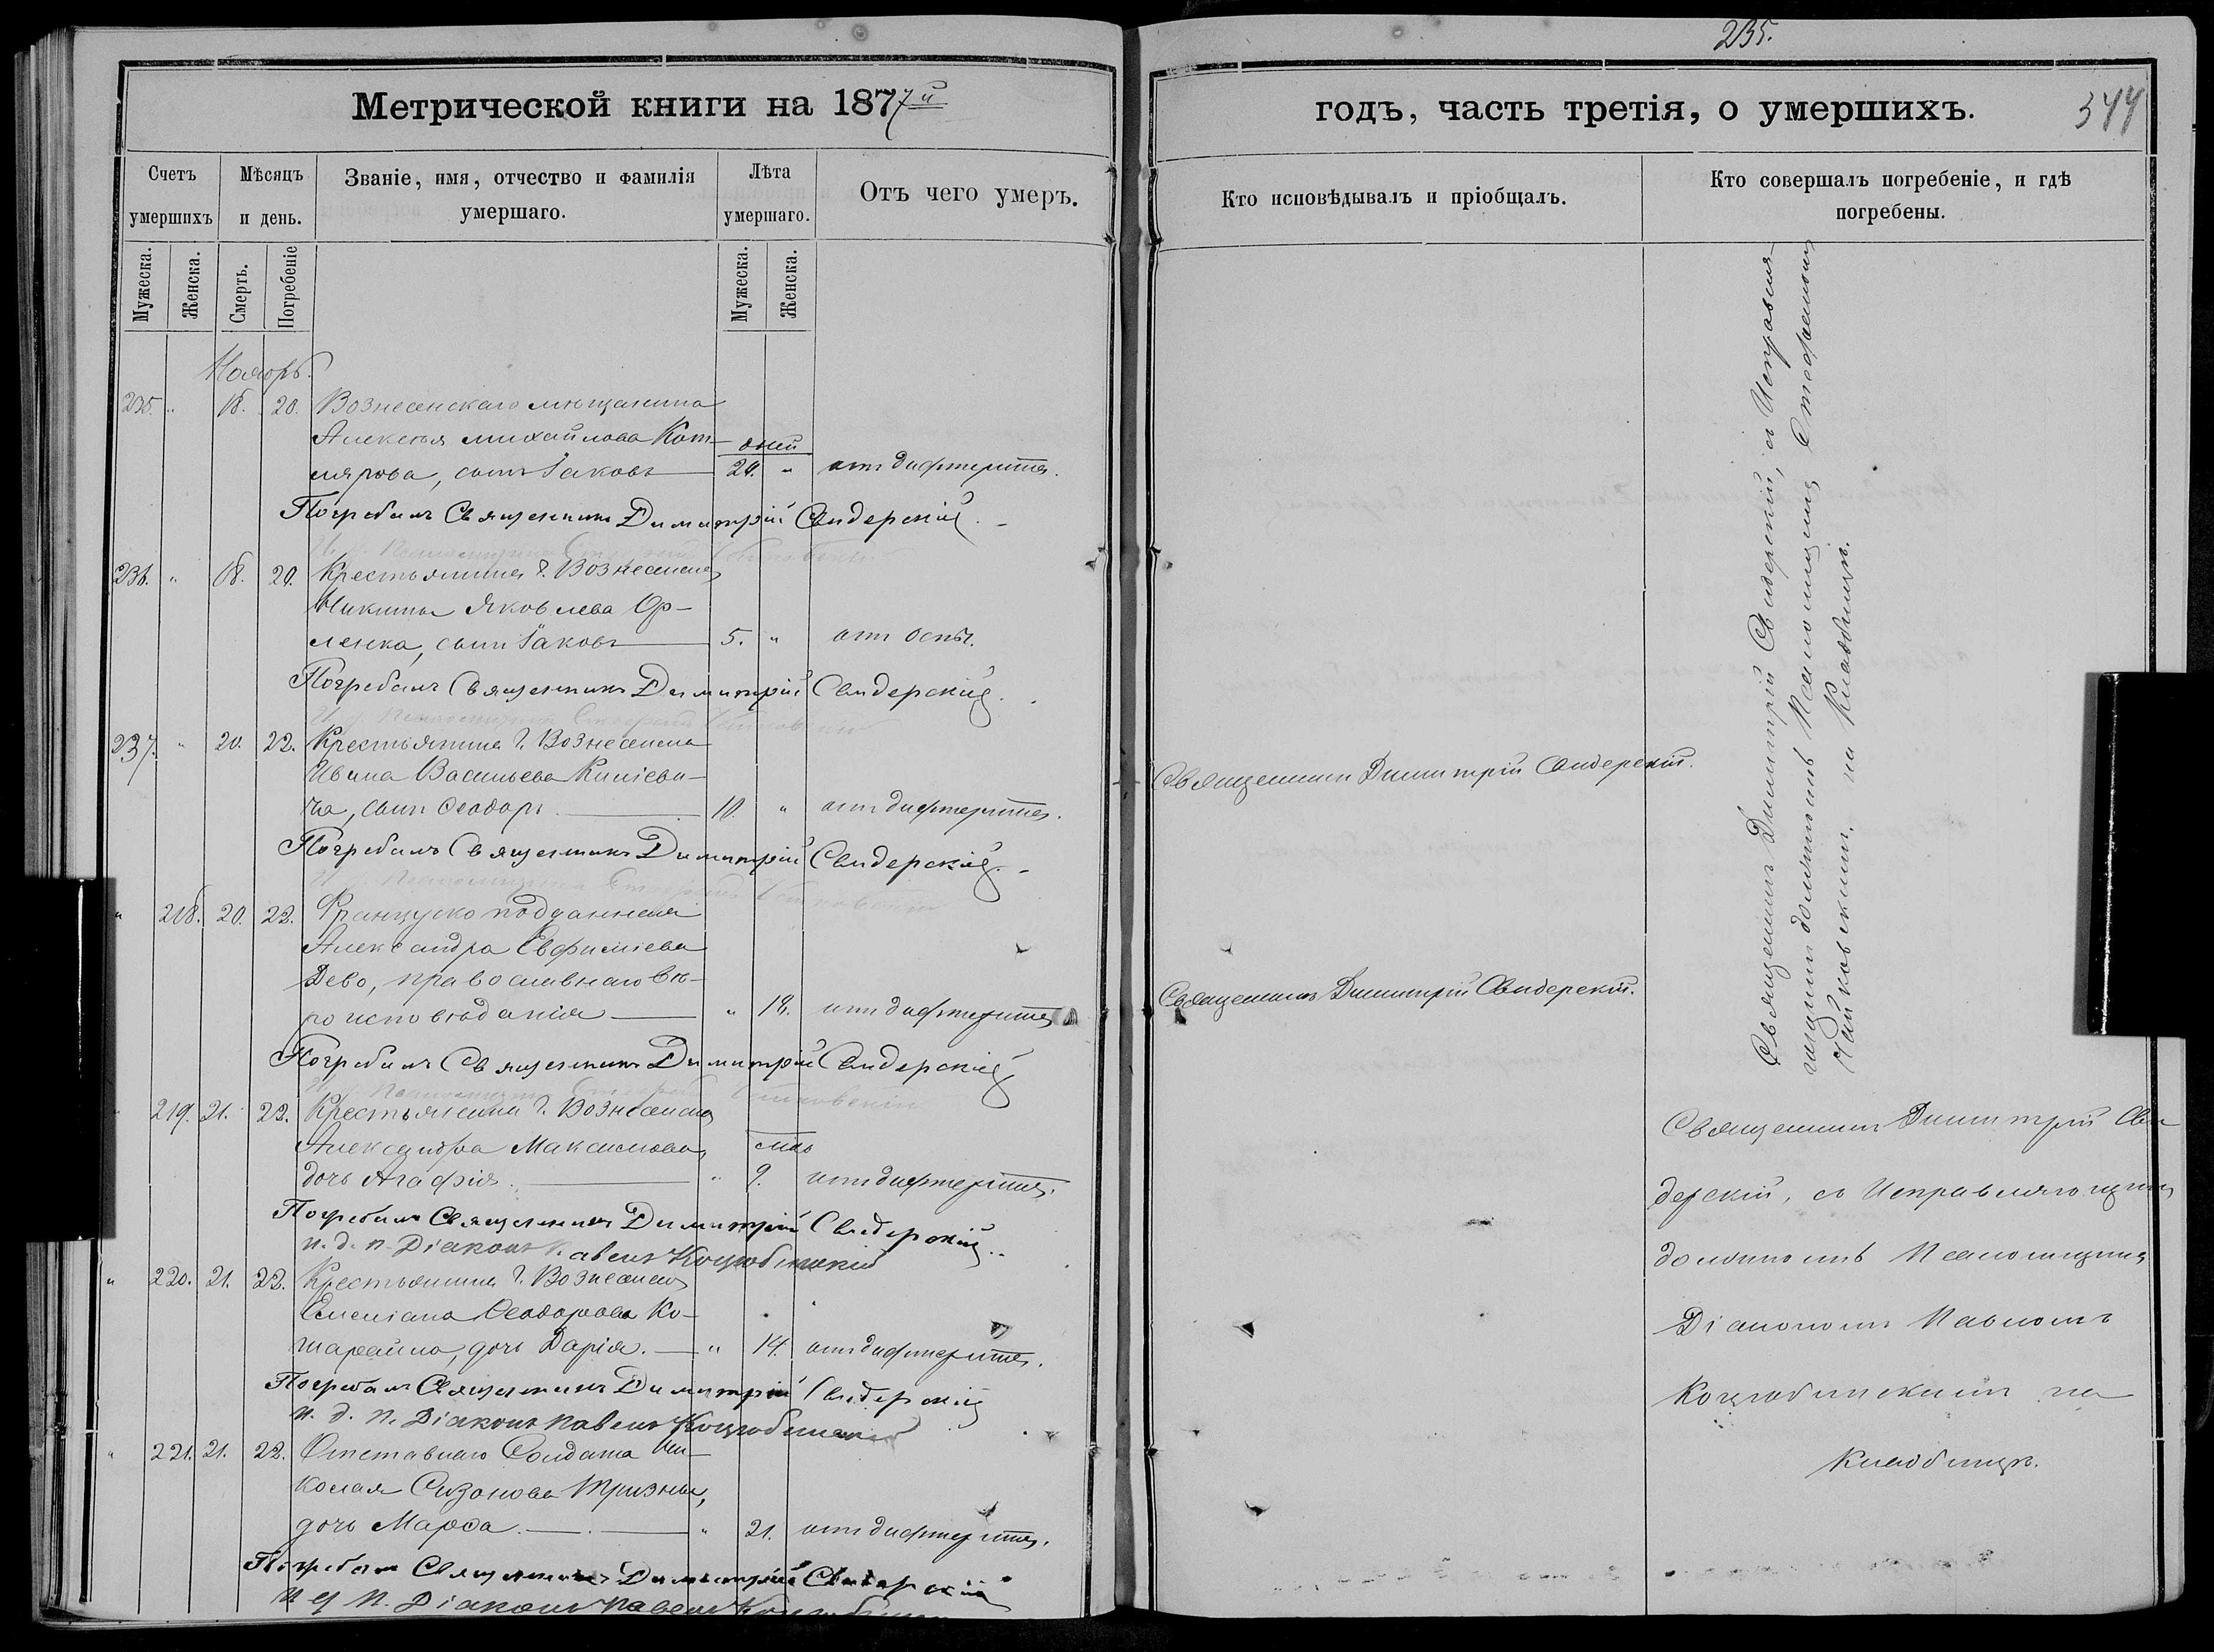 235.
Метрической книги на 1877й
годъ, часть третія, о умершихъ.
344
Счетъ умершихъ
Мѣсяцъ и день.
Званіе, имя, отчество и фамилія умершаго.
Лѣта умершаго.
Отъ чего умеръ.
Кто исповѣдывалъ и пріобщалъ.
Кто совершалъ погребеніе, и гдѣ погребены.
Мужеска.
Женска.
Смерть.
Погребеніе
Мужеска.
Женска.
Ноябрь.
235. " 18. 20. Вознесенскаго мѣщанина
Алексѣя Михайлова Кот-
дней
лярова, сынъ Іаковъ 29. " отъ дифтерита.
Погребалъ Священникъ Димитрій Свидерскій.
236. " 18. 20. Крестьянина г. Вознесенска
Никиты Яковлева Ор-
ленка, сынъ Іаковъ 5. " отъ оспы.
Погребалъ Священникъ Димитрій Свидерскій.
237. " 20. 22. Крестьянина г. Вознесенска
Ивана Васильева Киліеви-
ча, сынъ Ѳеодоръ 10. " отъ дифтерита.
Священникъ Димитрій Свидерскій.
Погребалъ Священникъ Димитрій Свидерскій.
" 218. 20. 22. Француско подданная
Александра Евфиміева
Дево, православнаго вѣ-
роисповѣданія " 18. отъ дифтерита
Священникъ Димитрій Свидерскій.
Погребалъ Священникъ Димитрій Свидерскій
219. 21. 22. Крестьянина г. Вознесенска
Александра Максимова
мѣс
дочь Агафія. " 9. отъ дифтерита.
Погребалъ Священникъ Димитрій Свидерскій.
и. д. п. Діаконъ Павелъ Коцюбинскій
" 220. 21. 22. Крестьянина г. Вознесенска
Емеліана Ѳеодорова Ко-
шарайло, дочь Дарія. " 14. отъ дифтерита.
Погребалъ Священникъ Димитрій Свидерскій
и. д. п. Діаконъ Павелъ Коцюбинскій
" 221. 21. 22. Отставнаго Солдата Ни-
колая Сизонова Тризны,
дочь Марѳа. " 21. отъ дифтерита.
Погребалъ Священникъ Димитрій Свидерскій
и д п. Діаконъ Павелъ
Священникъ Димитрій Свидерскій, съ Исправля-
ющимъ должность Псаломщика Стефаномъ
на Кладбищѣ.
Священникъ Димитрій Сви-
дерскій, съ Исправляющимъ
должность Псаломщика
Діакономъ Павломъ
Коцюбинскимъ на
Кладбищѣ.